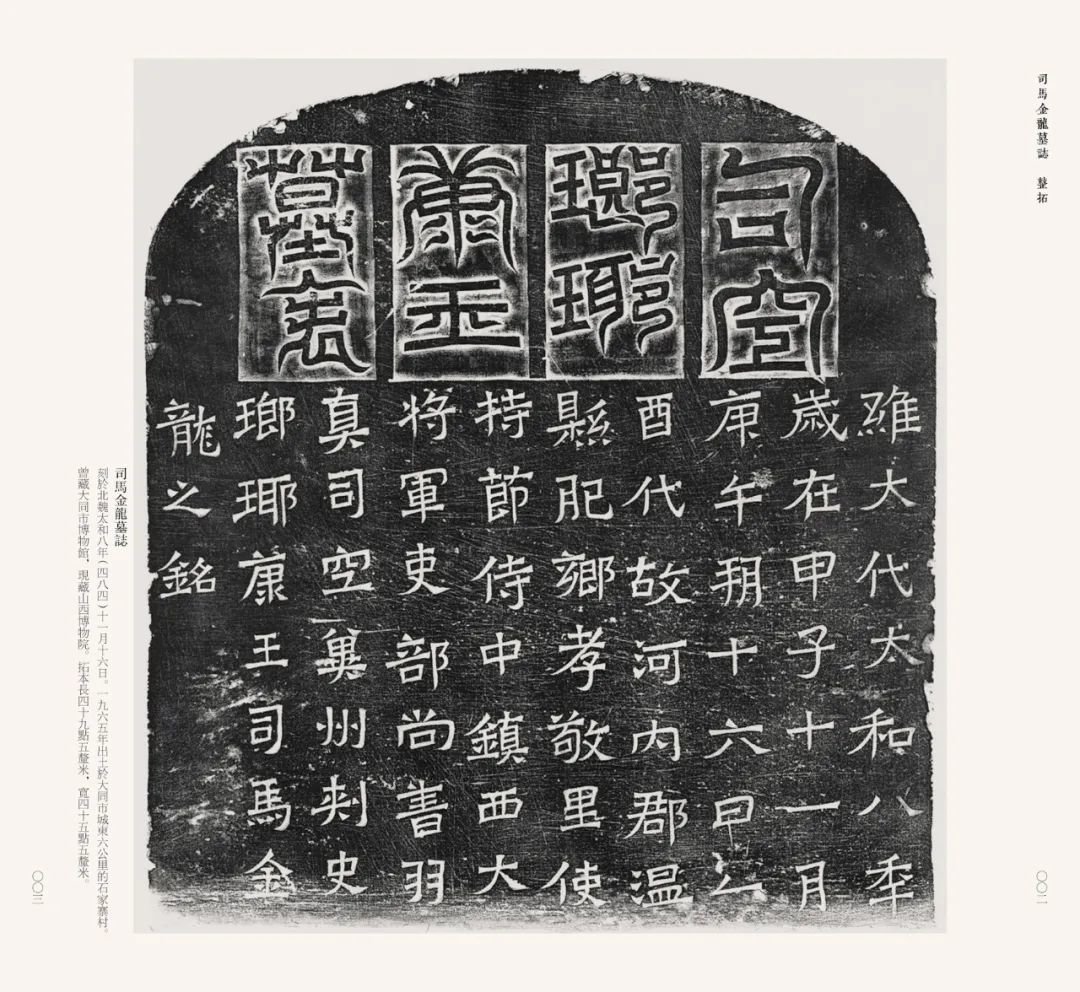 司馬金龍墓誌　整拓
〇〇二
司空
瑯琊
康王
墓表
維大代太和八年
歲在甲子十一月
庚午朔十六日乙
酉代故河內郡温
縣肥鄉孝敬里使
持節侍中鎮西大
將軍吏部尚書羽
真司空冀州刺史
瑯琊康王司馬金
龍之銘
司馬金龍墓誌
刻於北魏太和八年（四八四）十一月十六日。一九六五年出土於大同市城東六公里的石家寨村。
曾藏大同市博物館，現藏山西博物院。拓本長四十九點五釐米，寬四十五點五釐米。
〇〇三